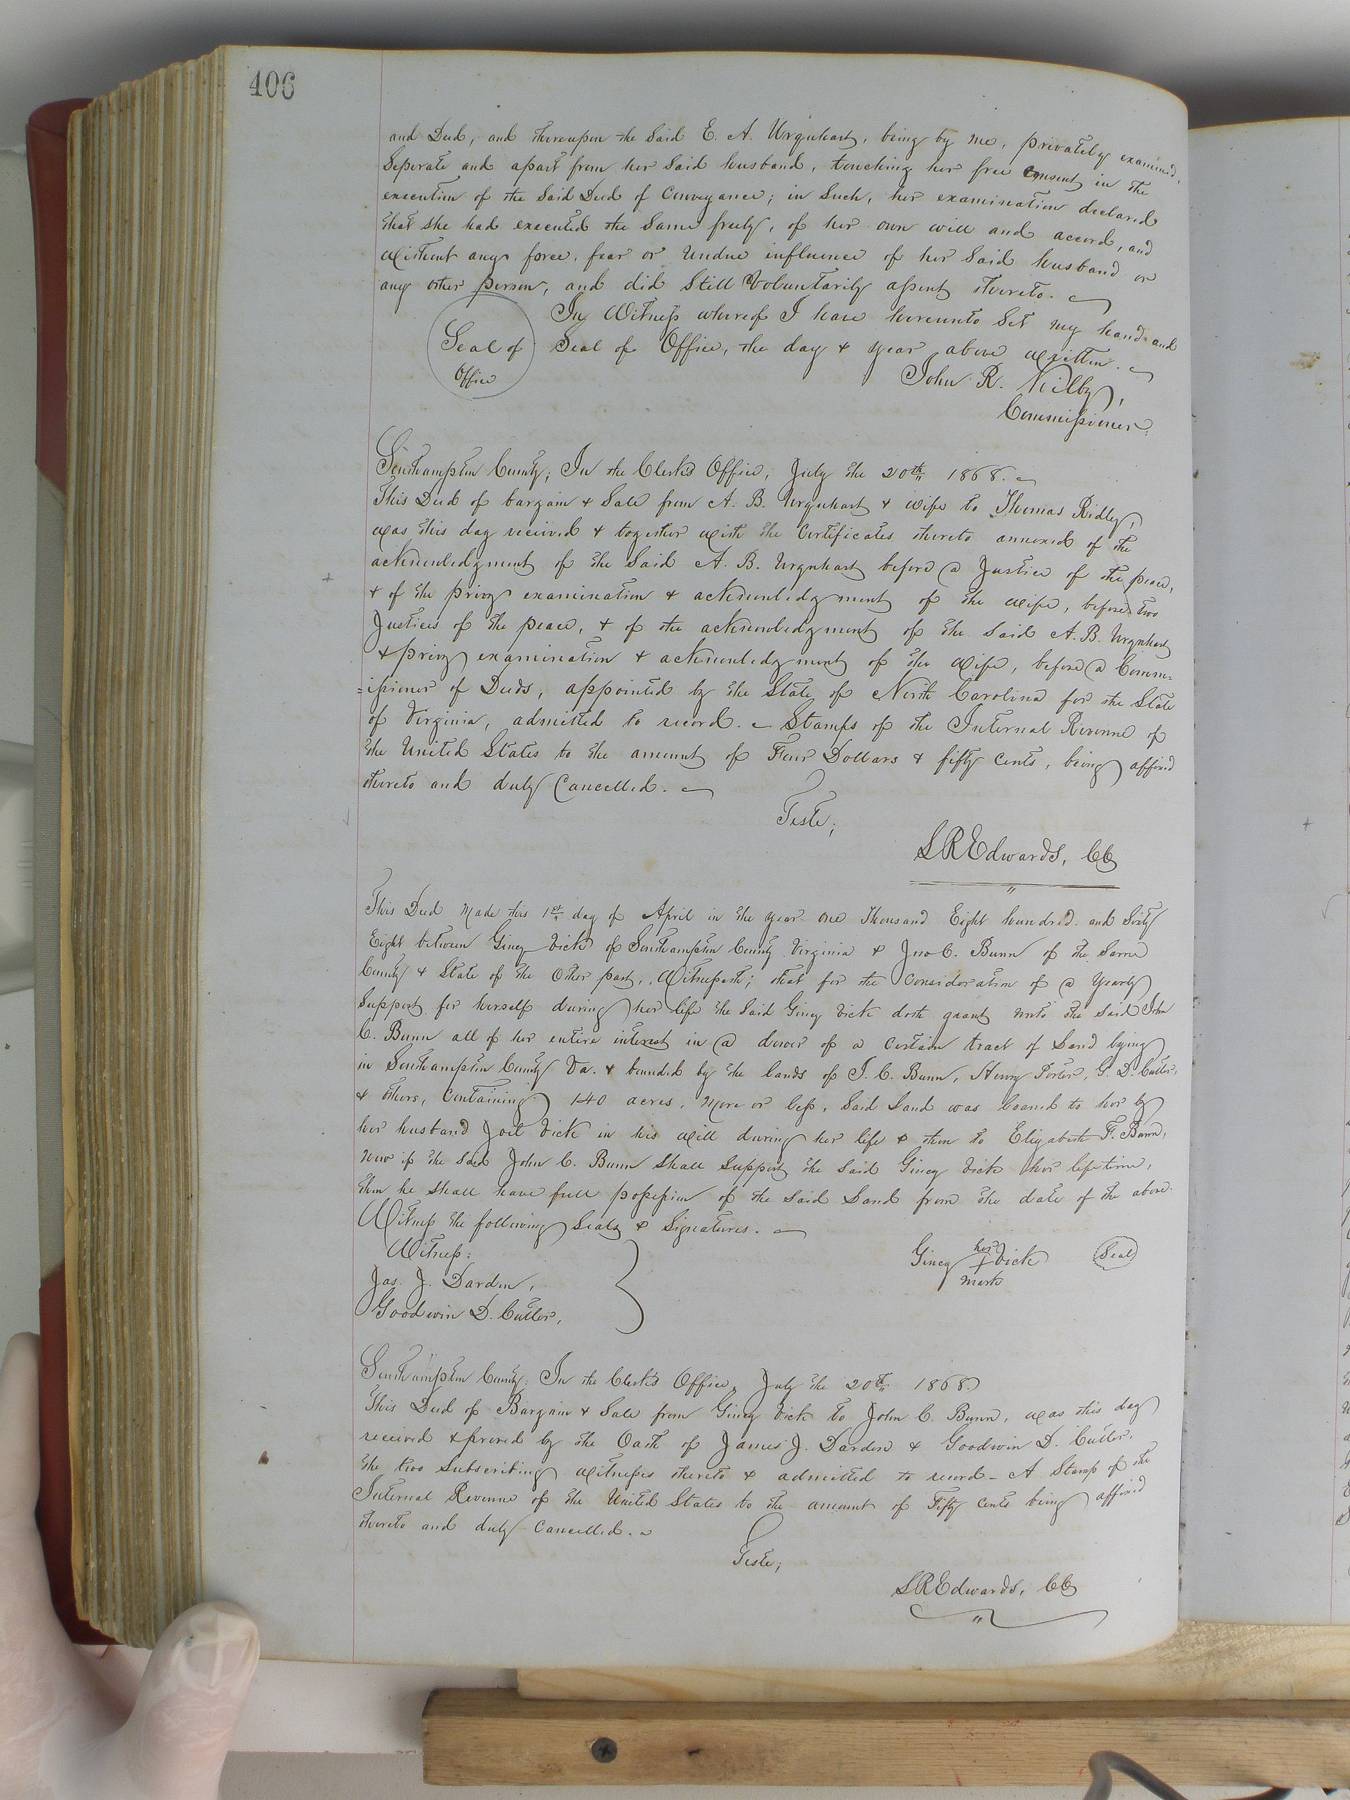 406
and Deed, and thereupon the Said E. A. Urquhart, being by me, privately examined,
Seperate and apart from her Said husband, touching her free Consent in the
execution of the Said Deed of Conveyance; in Such, her examination declared
that she had executed the Same freely, of her own will and accord, and
without any force, fear or undue influence of her Said husband or
any other person, and did Still Voluntarily assent thereto.
In Witness whereof I have hereunto Set my hand and
Seal of Office
Seal of Office, the day & year above written.
John R. Kilby,
Commissioner.
Southampton County; In the Clerk's Office, July the 20th 1868.
This Deed of bargain & Sale from A. B. Urquhart & wife to Thomas Ridley,
was this day received & together with the Certificates thereto annexed of the
acknowledgment of the Said A. B. Urquhart before a Justice of the peace,
& of the privy examination & acknowledgment of the wife, before two
Justices of the peace, & of the acknowledgment of the Said A. B. Urquhart
& privy examination & acknowledgment of the wife, before a Comm=
=issioner of Deeds, appointed by the State of North Carolina for the State
of Virginia, admitted to record. Stamps of the Internal Revenue of
the United States to the amount of Four Dollars & fifty cents, being affixed
thereto and duly Cancelled.
Teste;
L R Edwards, CC
This Deed Made this 1st day of April in the year one Thousand Eight hundred and Sixty
Eight between Giney Vick of Southampton County Virginia & Jno C. Bunn of the Same
County & State of the Other part, Witnesseth; that for the Consideration of a Yearly
Support for herself during her life the Said Giney Vick doth grant unto the Said John
C. Bunn all of her entire interest in a dower of a certain tract of Land lying
in Southampton County Va. & bounded by the lands of J. C. Bunn, Henry Porter, G. D. Cutler,
& others, Containing 140 acres, More or less, Said Land was loaned to her by
her husband Joel Vick in his will during her life & then to Elizabeth F. Bunn,
Now if the Said John C. Bunn Shall Support the Said Giney Vick her lifetime,
then he Shall have full possession of the Said Land from the date of the above.
Witness the following Seals & Signatures.
Witness:
Giney her + mark Vick Seal
Jas. J. Darden,
Goodwin D. Cutler,
Southampton County: In the Clerk's Office, July the 20th 1868
This Deed of Bargain & Sale from Giney Vick to John C. Bunn, was this day
received & proved by the Oath of James J. Darden & Goodwin D. Cutler,
the two Subscribing witnesses thereto & admitted to record - A Stamp of the
Internal Revenue of the United States to the amount of Fifty Cents being affixed
thereto and duly cancelled.
Teste;
L R Edwards, CC